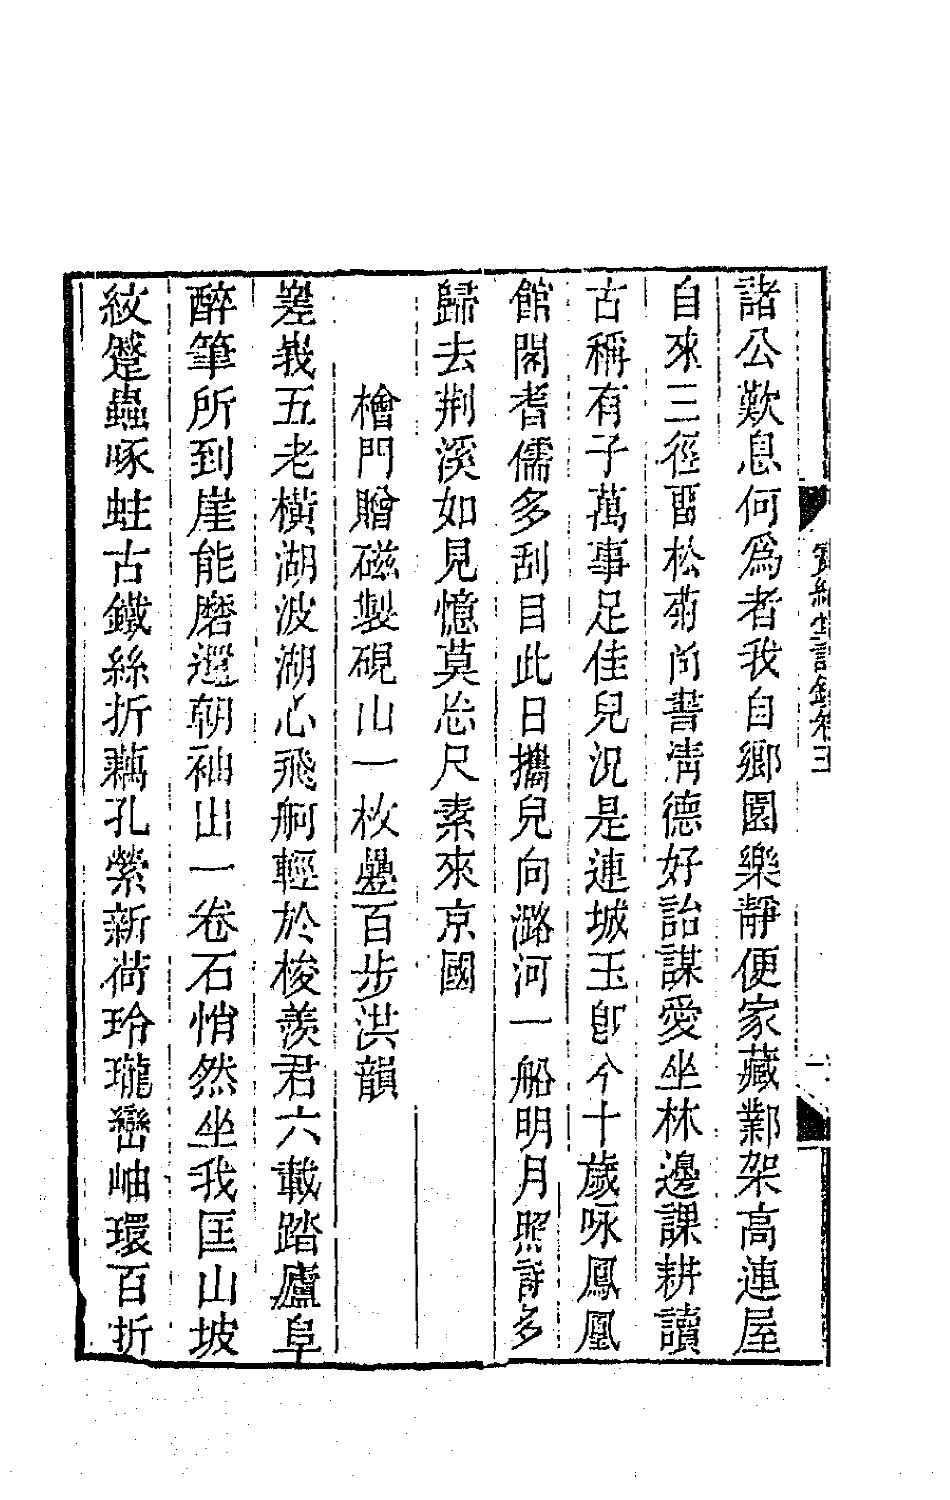 諸公歎息何爲者我自鄉園樂靜便家藏鄴架高連屋
自來三徑畱松菊尚書清德好詒謀愛坐林邊課耕讀
古稱有子萬事足佳兒況是連城玉卽今十歲咏鳳凰
館閣耆儒多刮目此日攜兒向潞河一船明月照詩多
歸去荆溪如見憶莫忘尺素來京國
檜門贈磁製硯山一枚疊百步洪韻
嵳峩五老橫湖波湖心飛舸輕於梭羨君六載踏廬阜
醉筆所到崖能磨還朝袖出一卷石悄然坐我匡山坡
紋蹙蟲啄蛀古鐵絲折藕孔縈新荷玲瓏巒岫環百折
寶綸堂詩鈔卷三
一